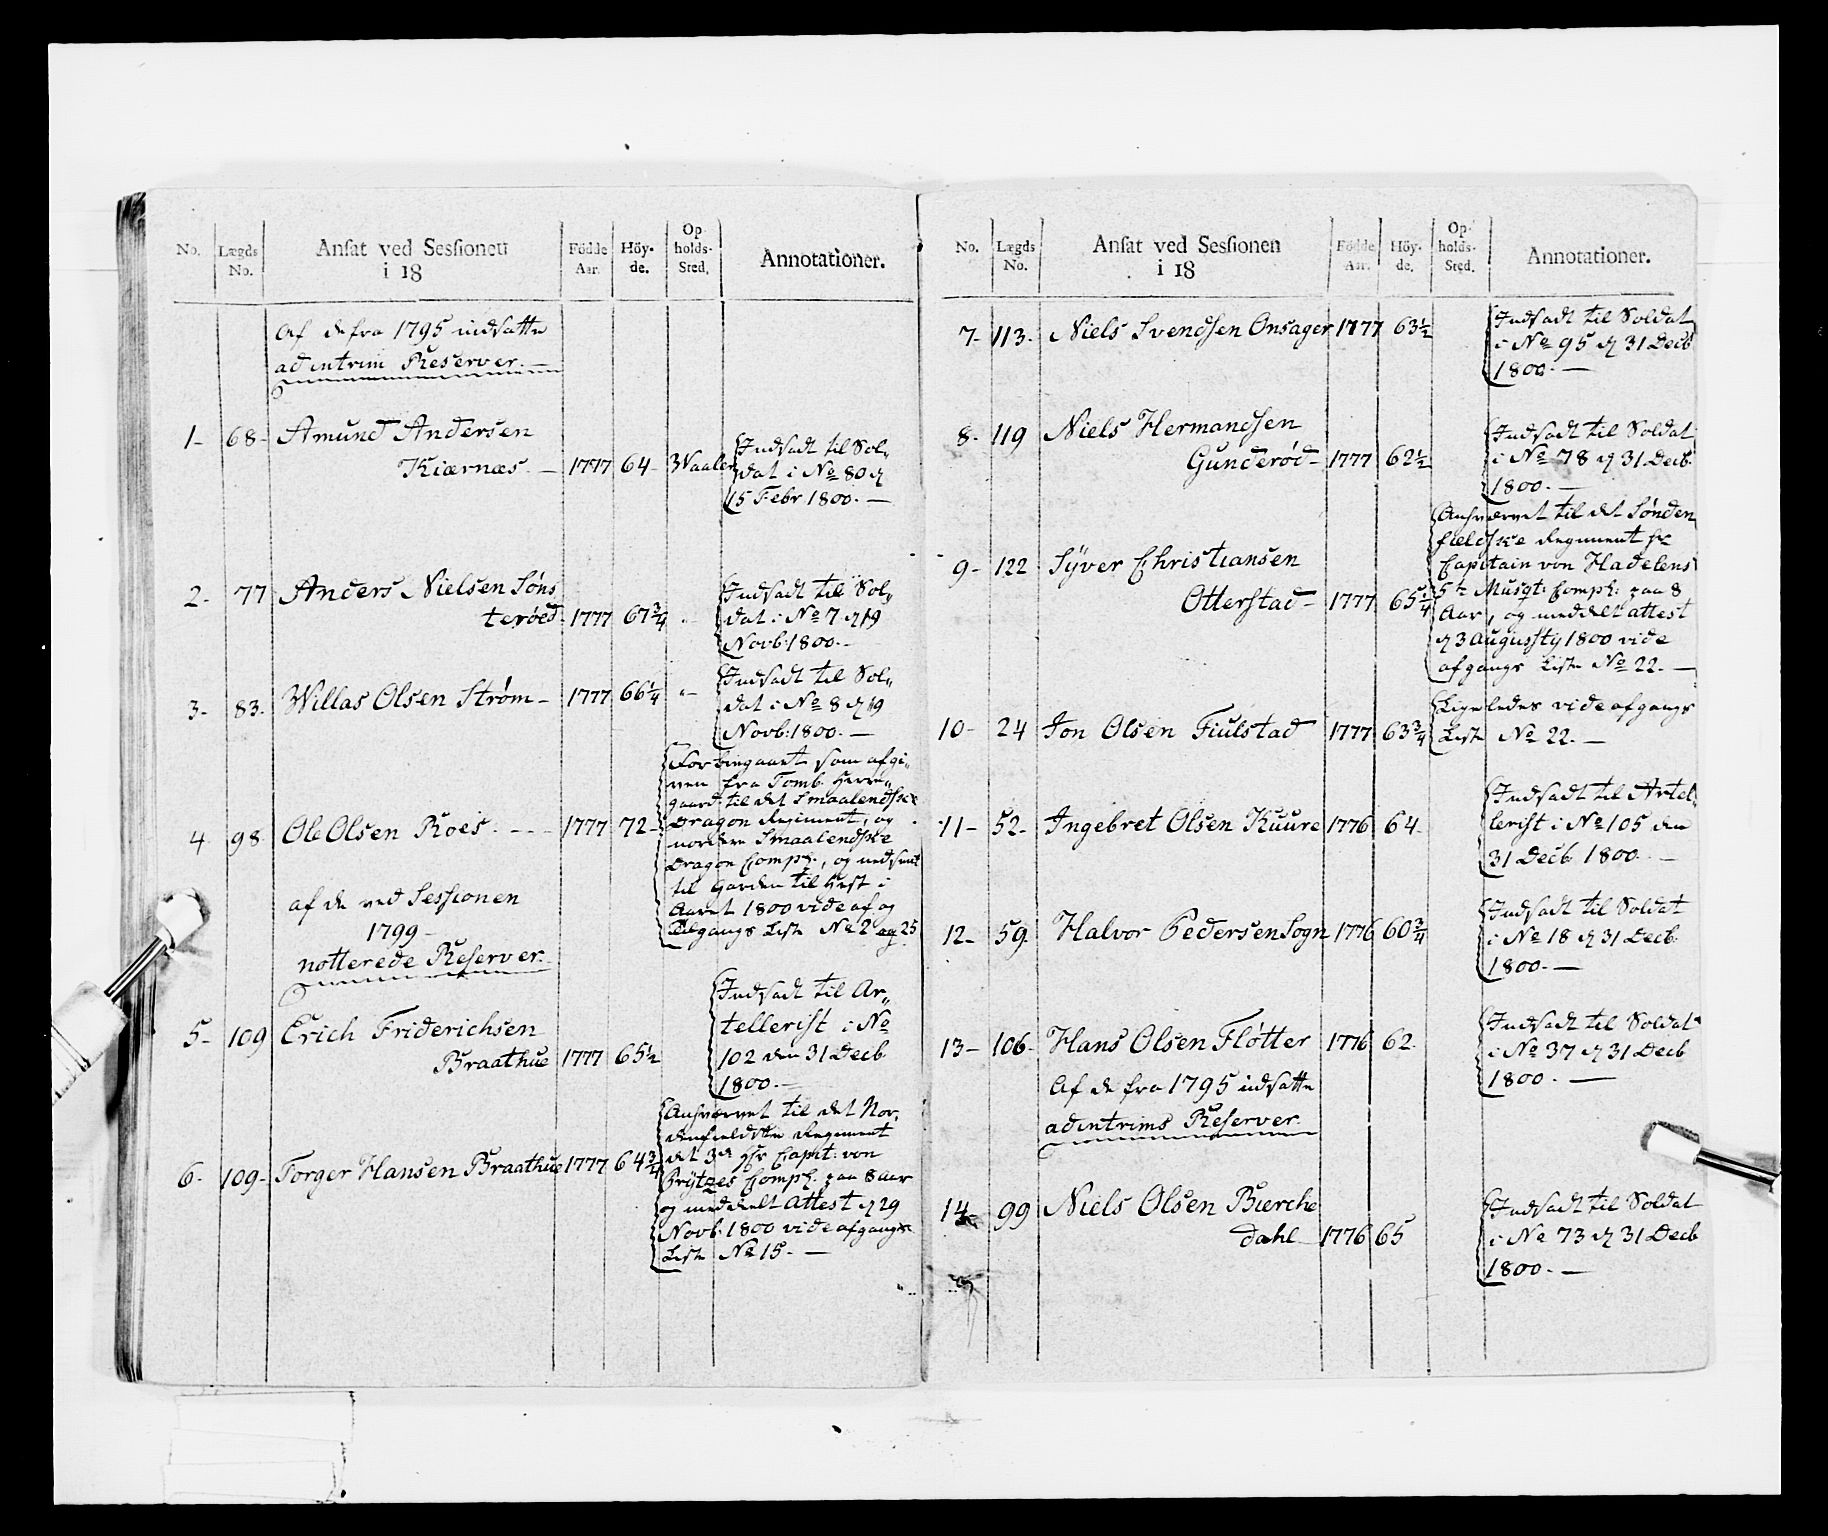 No. Lægds No. Ansat ved Sessionen i 18 Födde Aar. Höyde. Opholds-Sted. Annotationer.
Af de fra 1795 indsatte
ad intrim Reserver. —
1- 68- Amund Andersen
Kiærnæs. — 1777 64- Waaler
Indsadt til Sol„
dat i No 80 d
15 Febr 1800. —
2- 77 Anders Nielsen Søns
terøed 1777 67¾ „
Indsadt til Sol„
dat i No 7 d 19
Novb: 1800. -
3- 83. Willas Olsen Strøm- 1777 66¼ „-
Indsadt til Sol„
dat i No 8 d 19
Novb: 1800. —
4 98 Ole Olsen Roes. - - - 1777 72-
Forbigaaet som afgi„
ven fra Tomb Herre„
gaard til det Smaalendske
Dragon Regiment, og
nordere Smaalendske
Dragon Comp:, og nedsent
til Garden til Hest i
Aaret 1800 vide af og
Tilgangs Liste No 2 og 25
af de ved Sessionen
1799-
notterede Reserver.
5- 109 Erich Friderichsen
Braathue 1777 65½
Indsadt til Ar„
tellerist i No
102 den 31 Decb
1800. —
6- 109- Torger Hansen Braathue 1777 64¾
Anhværvet til det Nor„
denfieldske Regiment
det 3de Capit: von
Brÿtzes Comp: paa 8 Aar
og meddeelt Attest d 29
Novb: 1800 vide afgangs
Liste No 15. —
No. Lægds No. Ansat ved Sessionen i 18 Födde Aar. Höyde. Opholds-Sted. Annotationer.
7- 113- Niels Svendsen Onsager 1777 63½
Indsadt til Soldat
i No 95 d 31 Decb
1800. —
8- 119 Niels Hermandsen
Gunderød- 1777 62½
Indsadt til Soldat
i No 78 d 31 Decb.
1800. —
9- 122 Sÿver Christiansen
Otterstad- 1777 65¼
Anhværvet til det Sønden
fieldske Regiment
Capitain von Hadelens
5te Musqt: Comp: paa 8
Aar, og meddelt attest
d 3 Augusty 1800 vide
afgangs Liste No 22. —
10- 24 Jon Olsen Fiulstad 1777 63¾
Ligeledes vide afgangs
Liste No 22. —
11- 52- Ingebret Olsen Kuure 1776 64-
Indsadt til Artel„
lerist i No 105 den
31 Decb 1800. —
12- 59. Halvor Pedersen Sogn 1776 60¾
Indsadt til Soldat
i No 18 d 31 Decb.
1800. —
13- 106- Hans Olsen Fløtter 1776 62.
Indsadt til Soldat
i No 37 d 31 Decb
1800. —
Af de fra 1795 indsatte
ad intrims Reserver.
14 99 Niels Olsen Bierche
dahl- 1776 65
Indsadt til Soldat
i No 73 d 31 Decb
1800. —